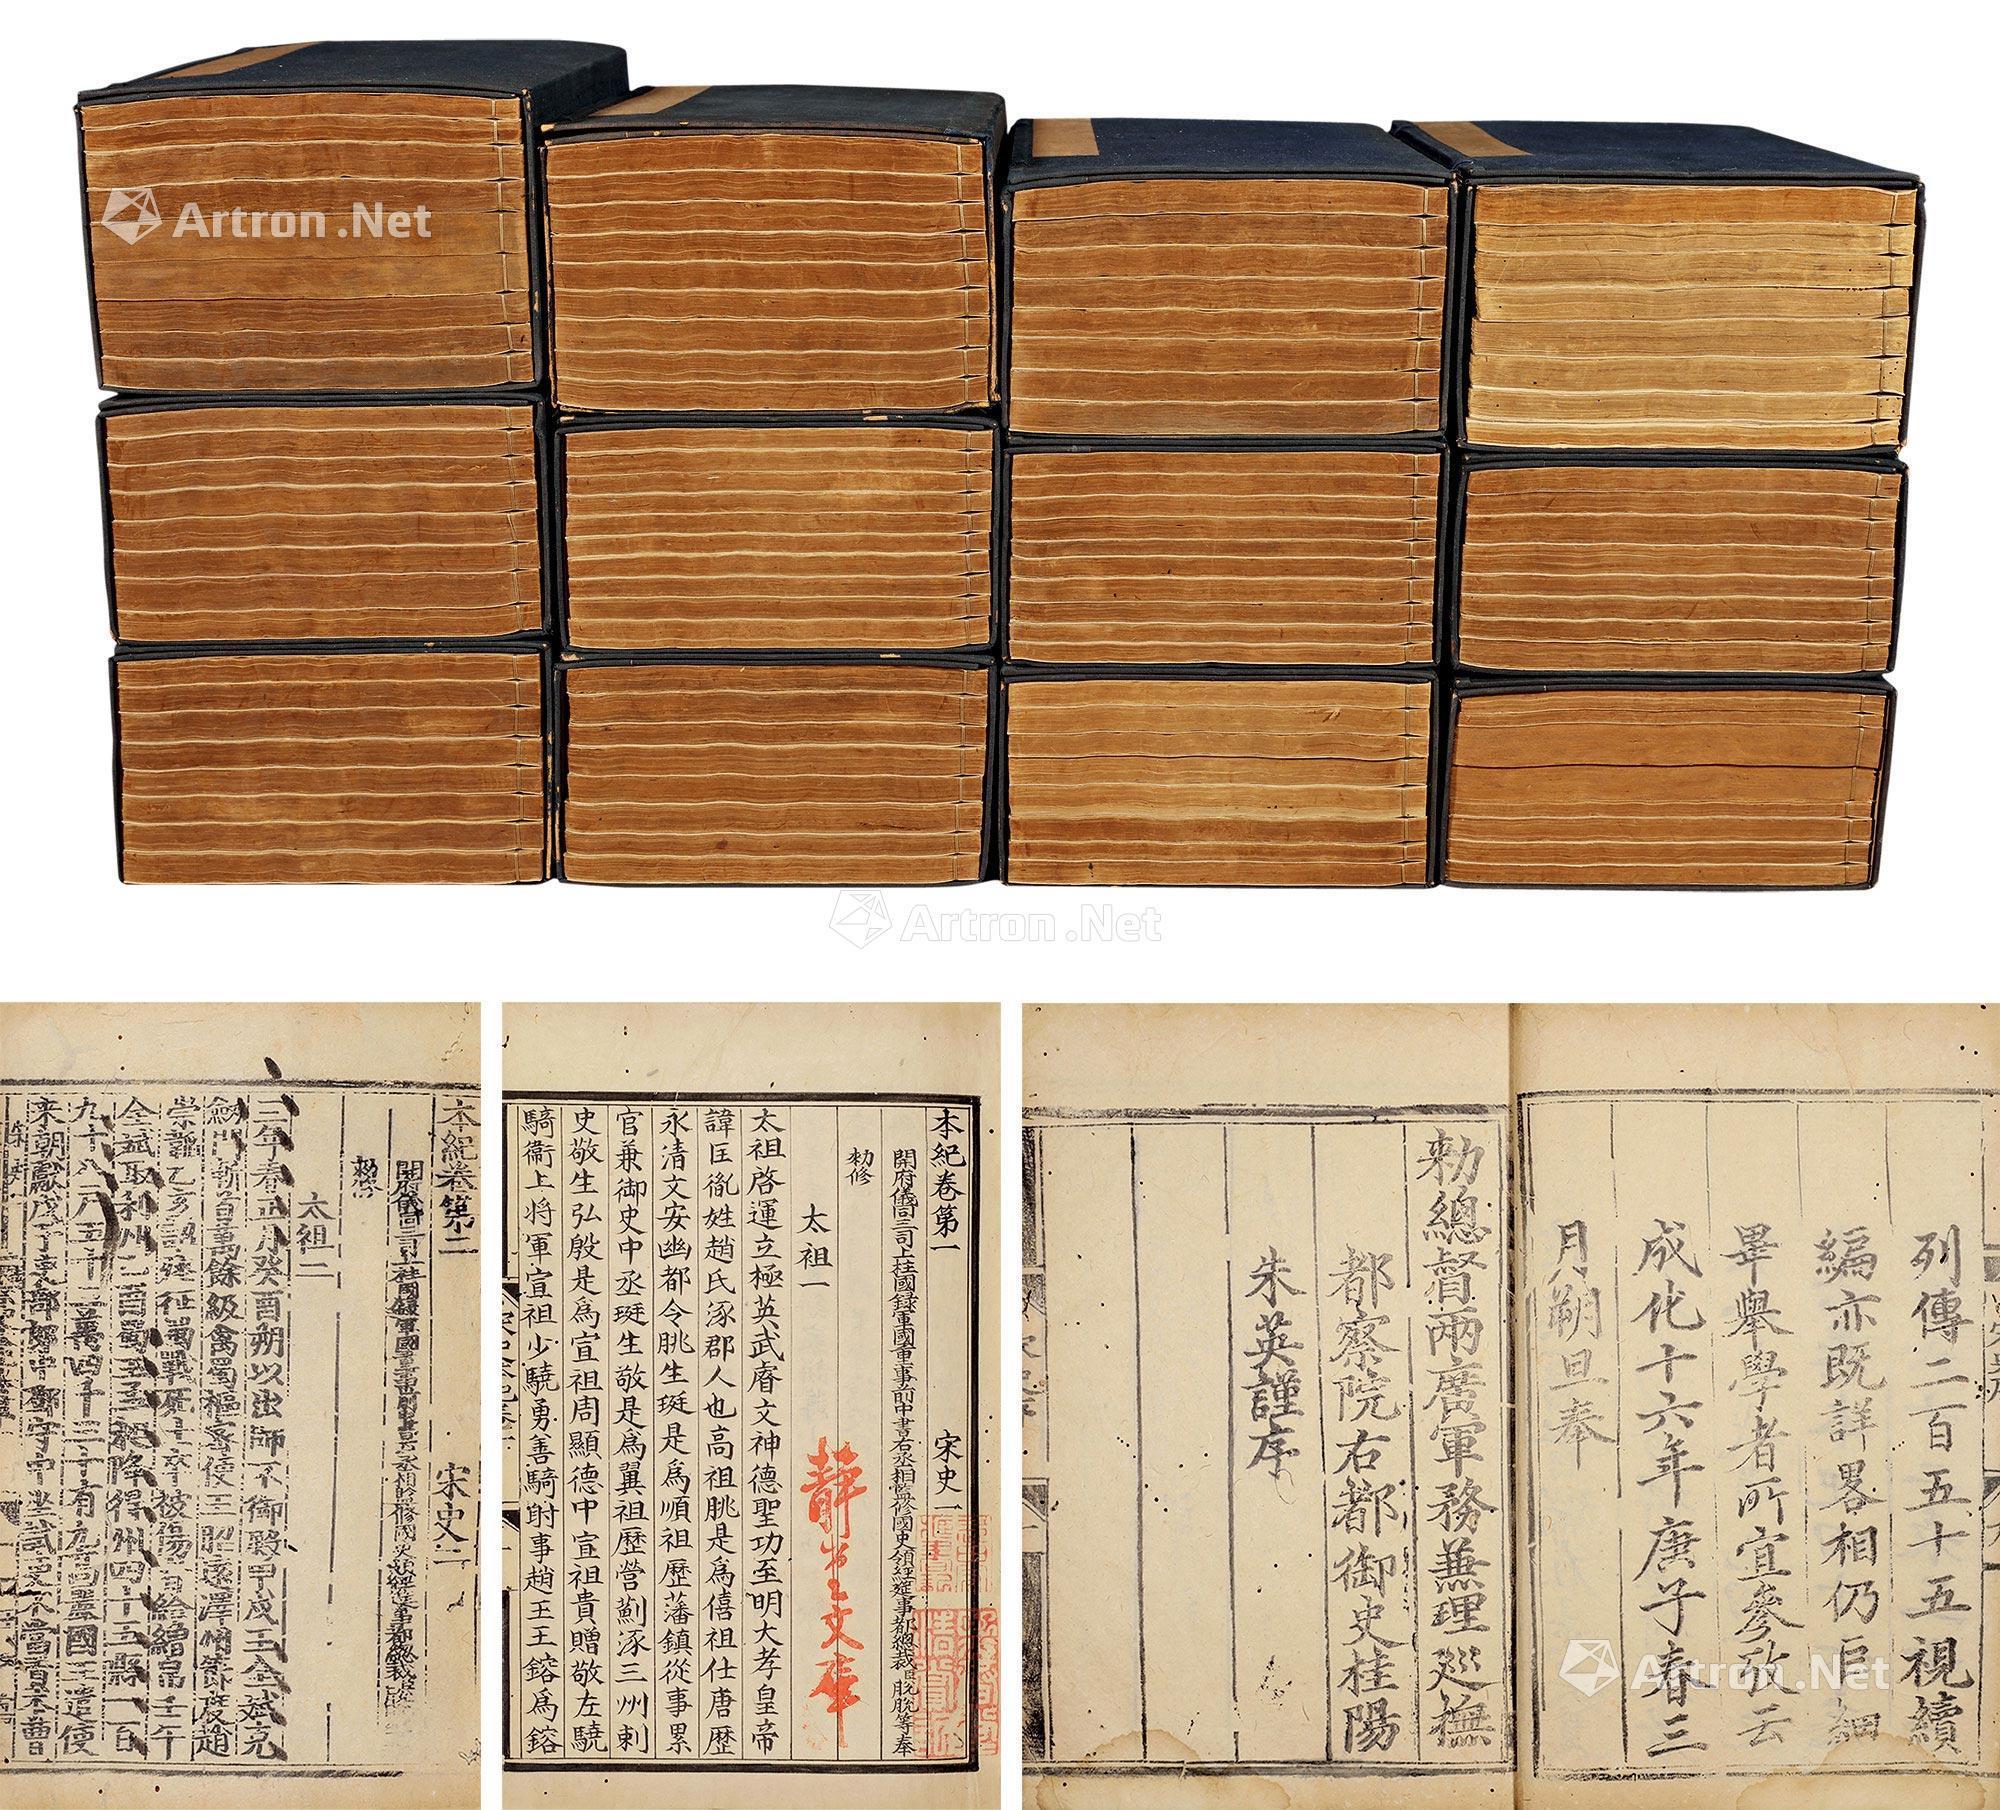 Artron.Net
Artron.Net
列傳二百五十五視續
編亦既詳畧相仍巨細
畢舉學者所宜參攷云
成化十六年庚子春三
月朔旦奉
勑總督兩廣軍務兼理巡撫
都察院右都御史桂陽
朱英謹序
Artron.Net
本紀卷第一 宋史一
開府儀同三司上柱國錄軍國重事前中書右丞相監修國史領經筵事都總裁臣脫脫等奉
勑修
太祖一
太祖啓運立極英武睿文神德聖功至明大孝皇帝
諱匡胤姓趙氏涿郡人也高祖朓是爲僖祖仕唐歷
永清文安幽都令朓生珽是爲順祖歷藩鎮從事累
官兼御史中丞珽生敬是爲翼祖歷營薊涿三州刺
史敬生弘殷是爲宣祖周顯德中宣祖貴贈敬左驍
騎衞上將軍宣祖少驍勇善騎射事趙王王鎔爲鎔
本紀卷第二 宋史二
勑修
太祖二
三年春正月癸酉朔以出師不御殿甲戌王全斌克
劒門斬首萬餘級禽蜀樞密使王昭遠澤州節度趙
崇韜乙亥詔瘞征蜀戰死士卒被傷者給繒帛壬午
全斌取利州乙酉蜀主孟昶降得州四十五縣一百
九十八戶五十三萬四千三十有九高麗國王遣使
來朝獻戊子吏部郎中鄧守中坐試吏不當責本曹